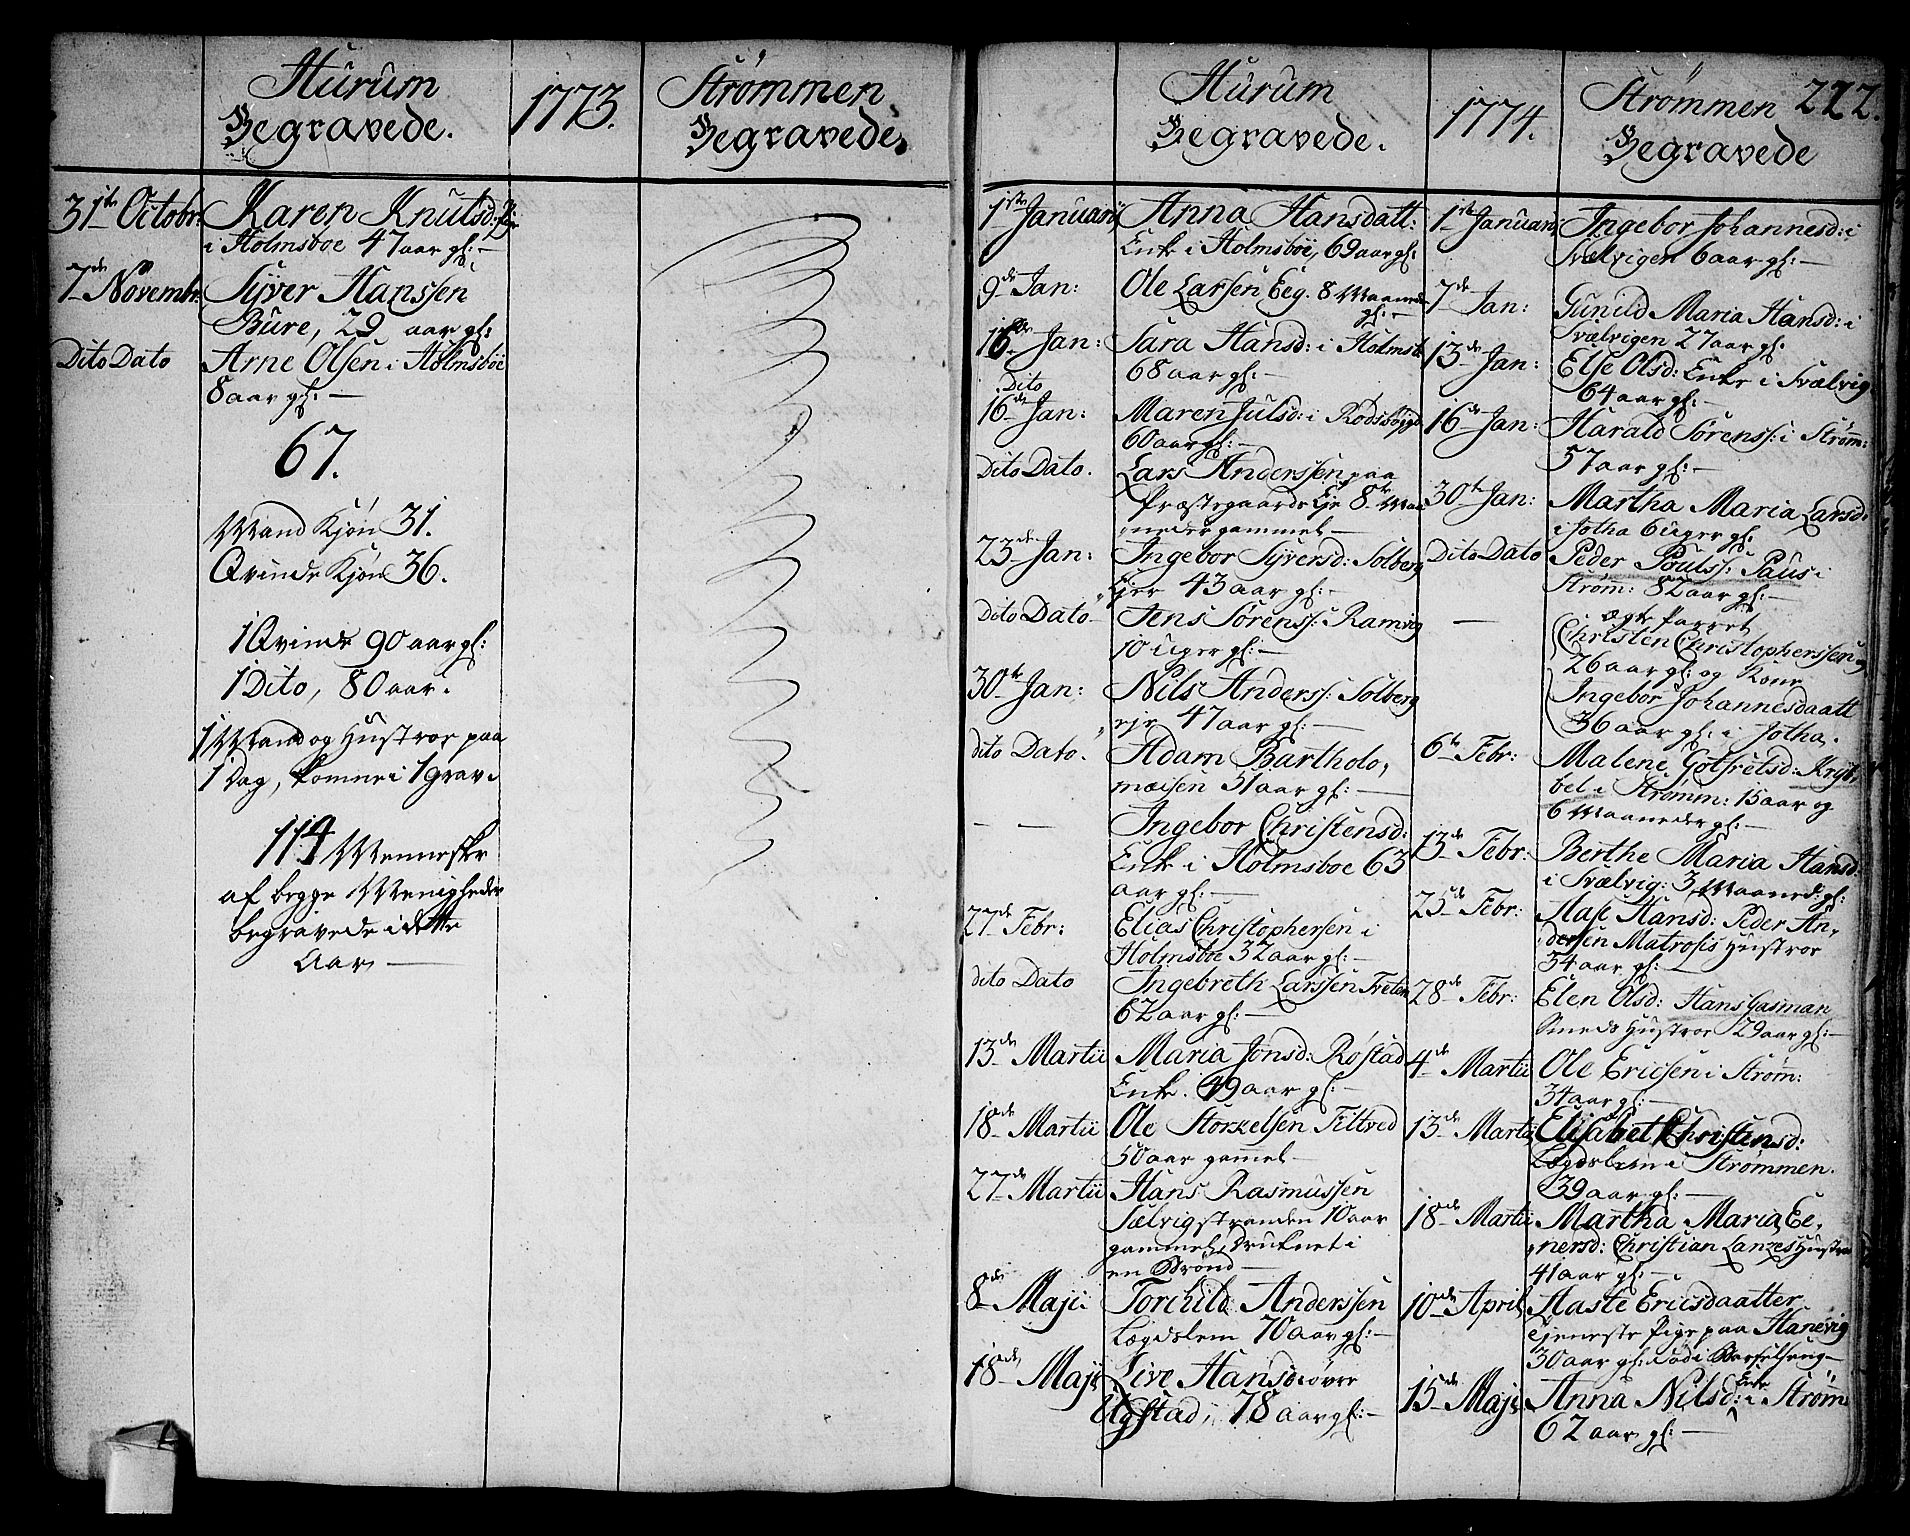 Hurum
Begravede.
1773.
Strømmen
Begravede.
31te Octobr: Karen Knutsd:
i Holmsboe 47 aar gl:
7de Novembr: Syver Hanssen
Bure, 29 aar gl:
Dito Dato Arne Olsen i Holmsboe
8 aar gl:
67.
Mand Kjøn 31.
Qvinde Kjøn 36.
1 Qvinde 90 aar gl:
1 Dito, 80 aar.
1 Mand og Hustroe paa
1 Dag, komne i 1 grav.
114 Menneske
af begge Menigheder
begravede i dette
Aar
Hurum
Begravede.
1ste Januarij Anna Hansdatt:
Enke i Holmsboe, 69 aar gl:
9de Jan: Ole Larsen Eeg. 8 Maaneder
gl:
16de Jan: Sara Hansd: i Holmsb:
68 aar gl:
Dito
16de Jan: Maren Julsd: i Rødsbøygd
60 aar gl:
Dito Dato. Lars Anderssen paa
Præstegaards Eje 8te Maa
neder gammel
23de Jan: Ingebor Syversd: Solberg
Ejer 43 aar gl:
Dito Dato Jens Sørens: Ramvig
10 Uger gl:
30te Jan: Nils Anders: Solberg
eje 47 aar gl:
dito Dato Adam Bartholo,
mæisen 51 aar gl:
Ingebor Christensd:
Enke i Holmsboe 63
aar gl:
27de Febr: Elias Christophersen i
Holmsboe 32 aar gl:
dito Dato Ingebreth Larssen Tveten
62 aar gl:
13de Martii Maria Jonsd: Røstad
Enke. 49 aar gl:
18de Martii Ole Storkelsen Filtved
50 aar gammel
27de Martii Hans Rasmussen
Sælvigstranden 10 aar
gammel, druknet i
en Brønd
8de Maji: Torchild Anderssen
Lægdslem 70 aar gl:
18de Maji Live Hansd: øvre
Elgstad, 78 aar gl:
1774.
Strømmen 222.
Begravede
1ste Januari Ingebor Johannesd: i
Svælvigen 6 aar gl:
7de Jan: Gunild Maria Hansd: i
Svælvigen 27 aar gl:
13de Jan: Else Olsd: Enke i Svælvig
64 aar gl:
16de Jan: Harald Sørens: i Strøm:
57 aar gl:
30te Jan: Martha Maria Larsd:
i Jotha 6 uger gl:
Dito Dato Peder Pouls: Paus i
Strøm: 82 aar gl:
ægte Parret
Christen Christopherssen
26 aar gl: og Kone
Ingebor Johannesdaatt
36 aar gl: i Jotha.
6te Febr: Malene Gotfretsd: Kryb,
bel i Strømm: 15 aar og
6 Maaneder gl:
13de Febr: Berthe Maria Hansd:
i Svælvig: 3 Maaned: gl:
25de Febr: Aase Hansd: Peder An,
dersen Matroses Hustroe
34 aar gl:
28de Febr: Elen Olsd: Hans Gasman
Smeds Hustroe 29 aar gl:
4de Martii Ole Ericsen i Strøm:
34 aar gl:
13de Martii Elisabet Christensd:
Lægdslem i Strømmen.
39 aar gl:
18de Martii Martha Maria Ee,
nersd: Christian Lanzes Hustroe
41 aar gl:
10de April Aaste Ericsdaatter
Tjeneste Pige paa Hanevig
30 aar gl: død i Barselseng
15de Maji Anna Nilsd: Enke i Strøm
62 aar gl: